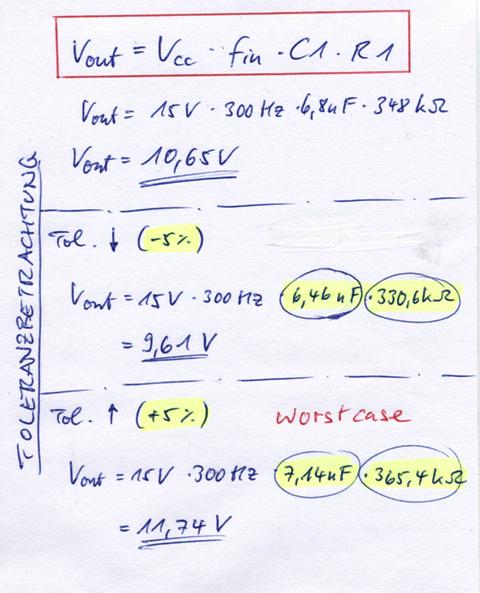 Vout = Vcc · fin · C1 · R1
Vout = 15V · 300 Hz · 6,8nF · 348 kΩ
Vout = 10,65V
TOLERANZBETRACHTUNG
Tol. ↓ (-5%)
Vout = 15V · 300 Hz · 6,46nF · 330,6kΩ
= 9,61 V
Tol. ↑ (+5%) worst case
Vout = 15V · 300 Hz · 7,14nF · 365,4kΩ
= 11,74 V